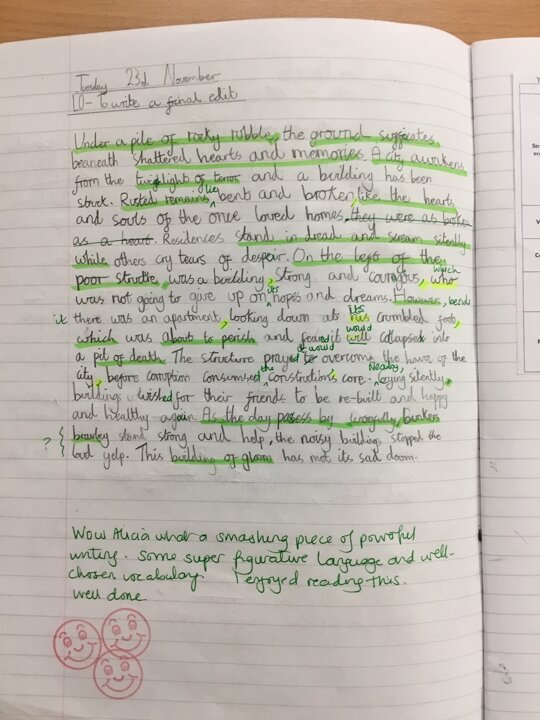 Tuesday 23rd November
LO - To write a final edit
Under a pile of rocky rubble, the ground suffocates
beaneath shattered hearts and memories. A city awakens
from the twighlight of terror and a building has been
struck. Rusted remains lie bent and broken, like the hearts
and souls of the once loved homes they were as broken
as a heart. Residences stand in dread and scream silently
while others cry tears of despair. On the left of the
poor structre, was a building, strong and courageous, who which
was not going to give up on its hopes and dreams. However, beside
it there was an apartment, looking down at his its crumbled foot,
which was about to perish and feared it will would collapsed into
a pit of death. The structure prayed it would to overcome the of the
city, before corruption consumed the constructions core. Nearby, crying silently,
buildings wished for their friends to be re-built and happy
and healthy again. As the day passess by woefully, bunkers
? bravley stand strong and help, the noisy buildings stopped the
loud yelp. This building of gloom has met its sad doom.
Wow Alicia what a smashing piece of powerful
writing. Some super figurative language and well-
chosen vocabulary. I enjoyed reading this.
Well done